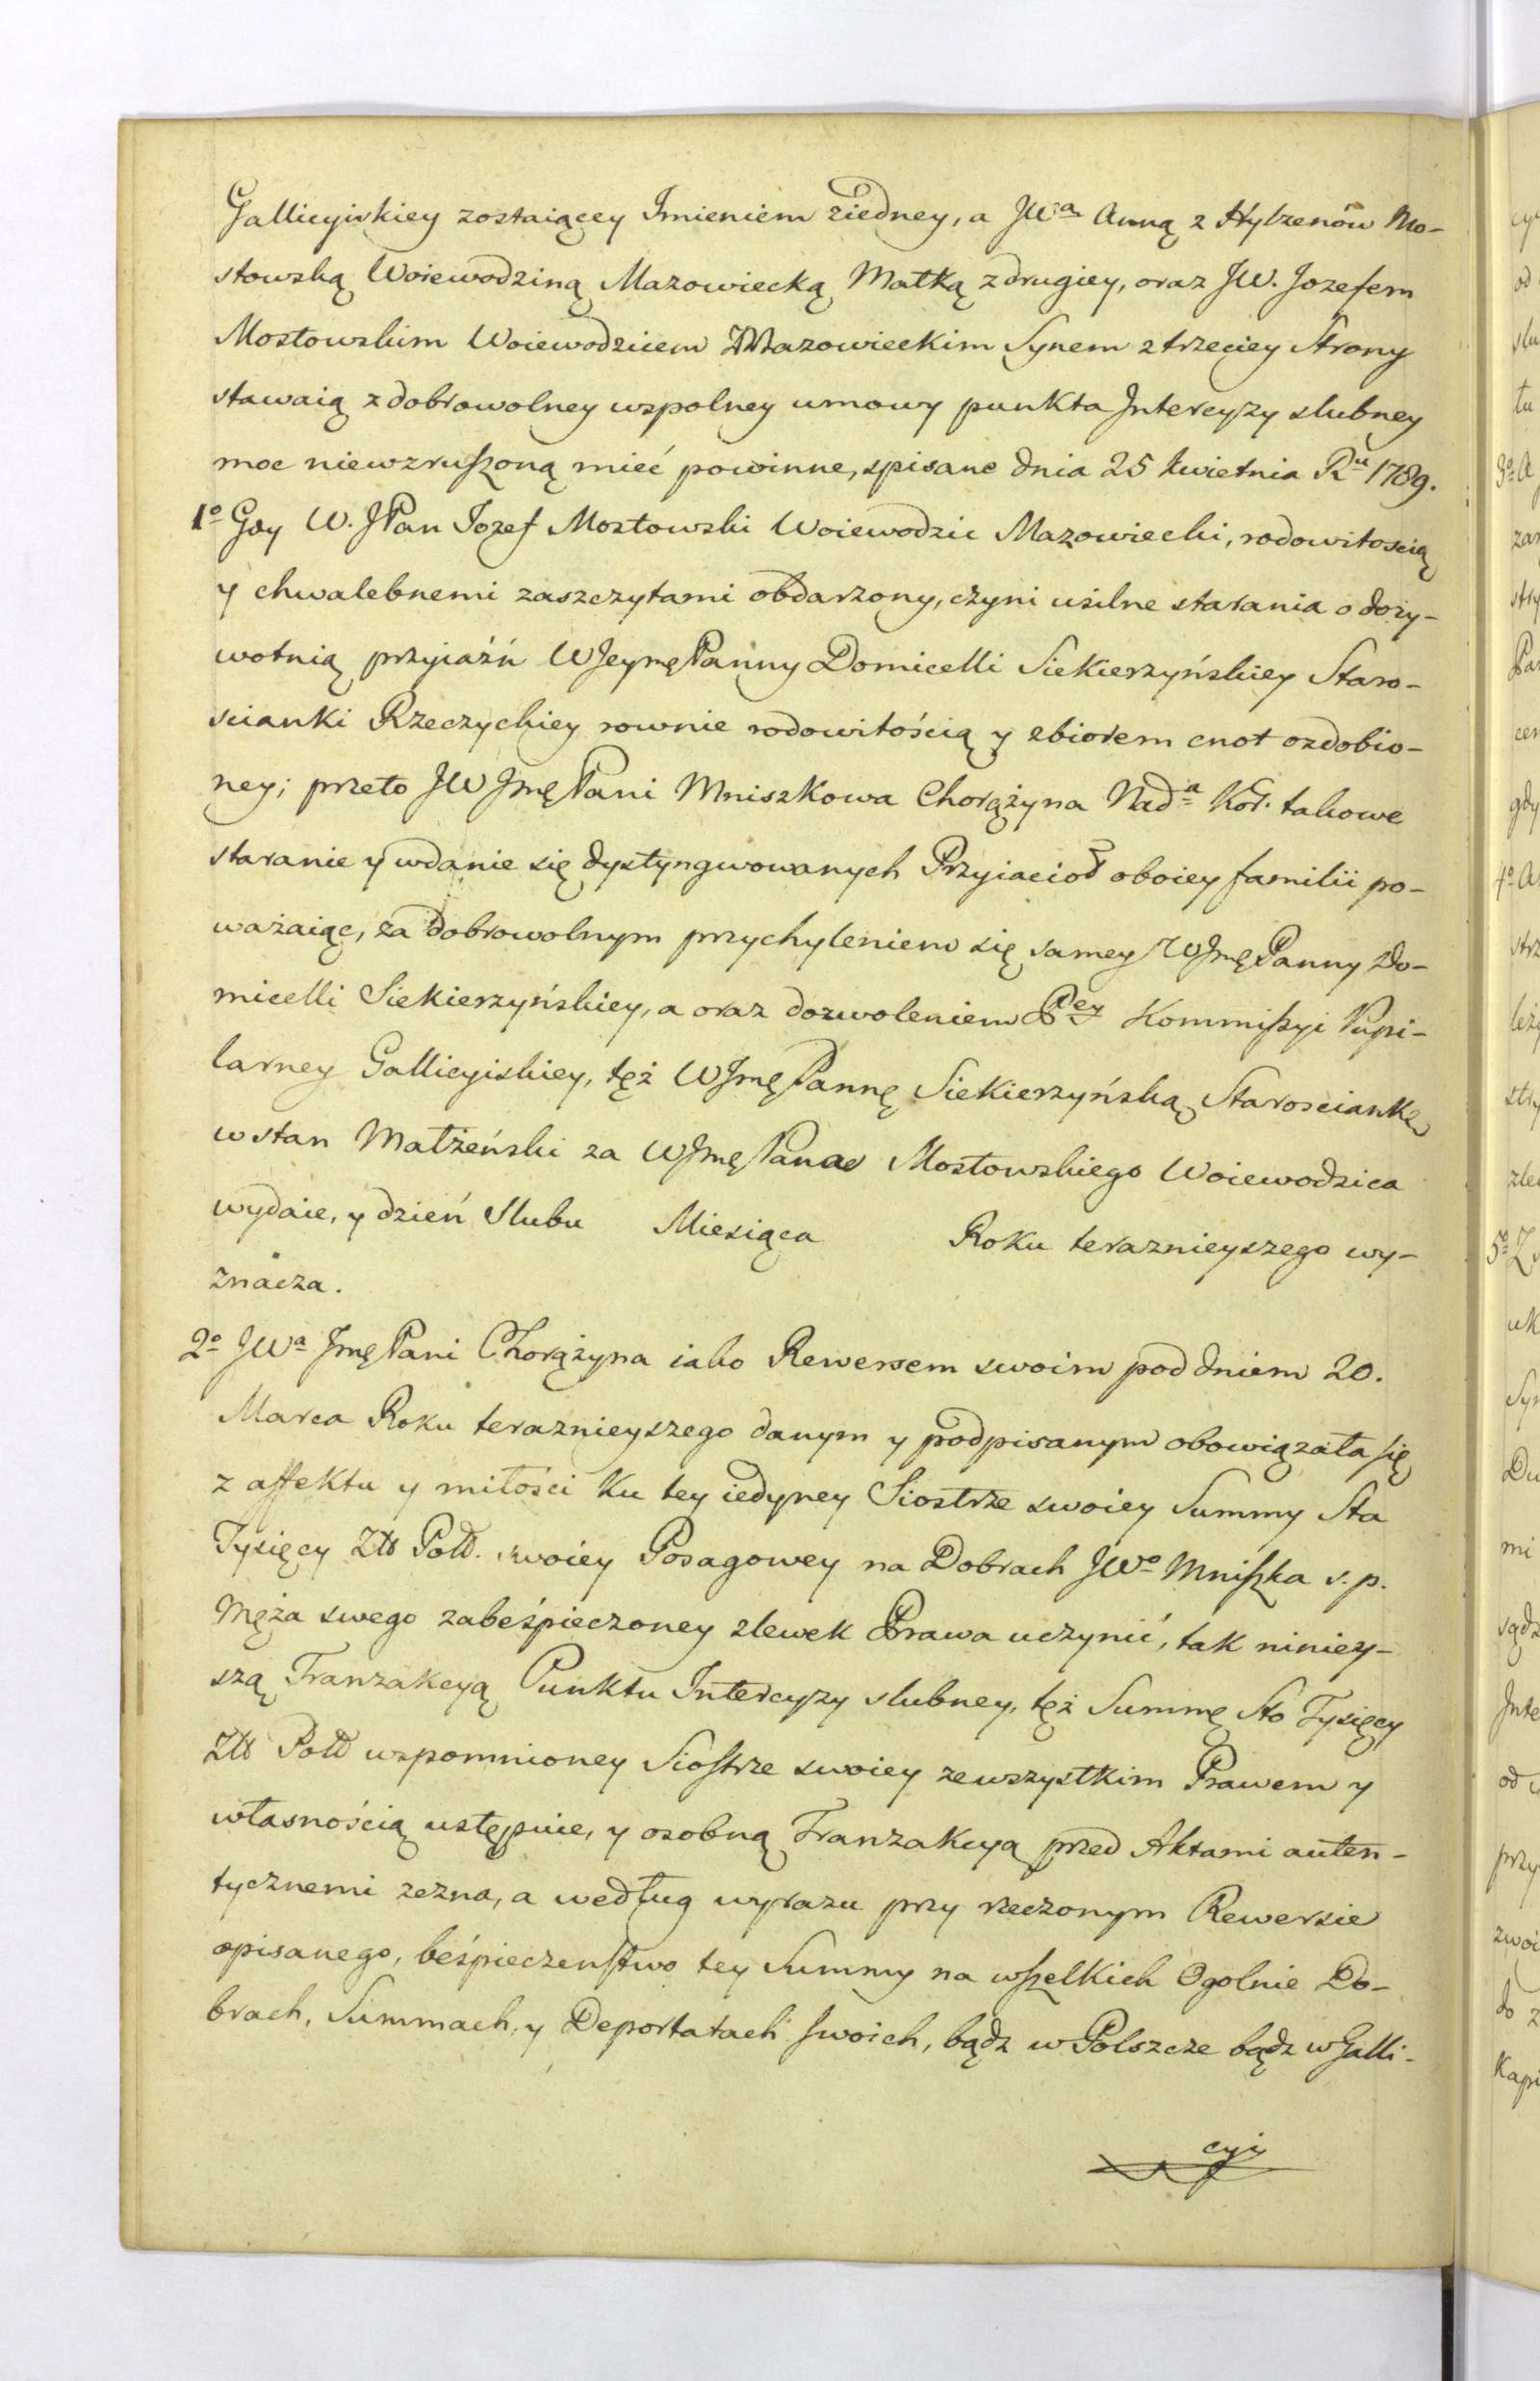 Gallicyiskiey zostaiącey Imieniem ziedney, a JWą Anną z Hylzenów Mo-
stowską Woiewodziną Mazowiecką Matką z drugiey, oraz JW. Jozefem
Mostowskim Woiewodzicem Mazowieckim Synem z trzeciey Strony
stawaią z dobrowolney wspolney umowy punkta Intercyzy slubney
moc niewzruszoną mieć powinne, spisane dnia 25 kwietnia Ru 1789.
1o Gdy W. JPan Jozef Mostowski Woiewodzic Mazowiecki, rodowitoscią
y chwalebnemi zaszczytami obdarzony, czyni usilne starania o doży-
wotnią przyiaźń WJeymę Panny Domicelli Siekierzyńskiey Staro-
scianki Rzeczyckiey rownie rodowitością y zbiorem cnot ozdobio-
ney; przeto JW JmęPani Mniszkowa Chorążyna Nada Kor. takowe
staranie y wdanie się dystyngwowanych Przyiacioł oboiey familii po-
ważaiąc, za dobrowolnym przychyleniem się samey WJmęPanny Do-
micelli Siekierzyńskiey, a oraz dozwoleniem Pey Kommissyi Pupi-
larney Gallicyiskiey, też WJmęPannę Siekierzyńską Staroscianke
w stan Małżeński za WJmęPana Mostowskiego Woiewodzica
wydaie, y dzień Slubu Miesiąca Roku teraznieyszego wy-
znacza.
2o JWa JmęPani Chorążyna iako Rewersem swoim pod dniem 20.
Marca Roku teraznieyszego danym y podpisanym obowiązała się
z affektu y miłości ku tey iedyney Siostrze swoiey Summy Sta
Tysięcy Złł Poll. swoiey Posagowey na Dobrach JWo Mniszka s. p.
Męża swego zabeśpieczoney zlewek Prawa uczynić, tak niniey-
szą Tranzakcyą Punktu Intercyzy slubney, też Summę Sto Tysięcy
Złł Poll wspomnioney Siostrze swoiey ze wszystkim Prawem y
własnością ustępuie, y osobną Tranzakcyą przed Aktami auten-
tycznemi zezna, a według wyrazu przy rzeczonym Rewersie
opisanego, beśpieczenstwo tey Summy na wszelkich Ogolnie Do-
brach, Summach, y Deportatach swoich, bądz w Polszcze bądz w Galli-
cyi